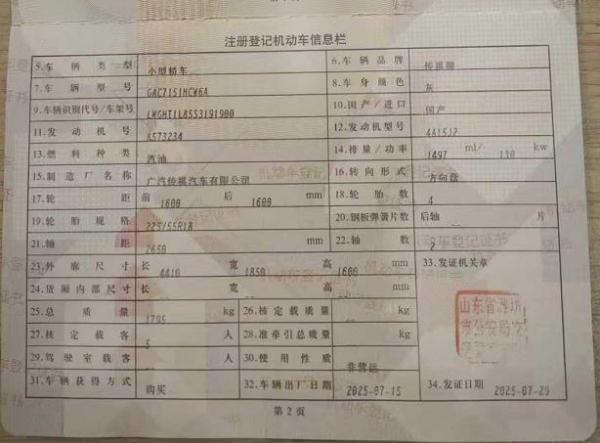 注册登记机动车信息栏
5.车辆类型 小型轿车 6.车辆品牌 传祺牌
7.车辆型号 GAC7151MCW6A 8.车身颜色 灰
9.车辆识别代号/车架号 10.国产/进口 国产
11.发动机号 12.发动机型号 4A15J2
13.燃料种类 汽油 14.排量/功率 1497 ml/ kw
15.制造厂名称 广汽传祺汽车有限公司 16.转向形式 方向盘
17.轮距 前 1600 后 1600 mm 18.轮胎数 4
19.轮胎规格 225/55R18 20.钢板弹簧片数 后轴 片
21.轴距 2650 mm 22.轴数 2
23.外廓尺寸 长 4410 宽 1850 高 1600 mm 33.发证机关章
24.货厢内部尺寸 长 宽 高 mm
25.总质量 1795 kg 26.核定载质量 kg
27.核定载客 5 人 28.准牵引总质量 kg
29.驾驶室载客 人 30.使用性质 非营运
31.车辆获得方式 购买 32.车辆出厂日期 2025-07-15 34.发证日期 2025-07-29
山东省潍坊
市公安局交
第2页